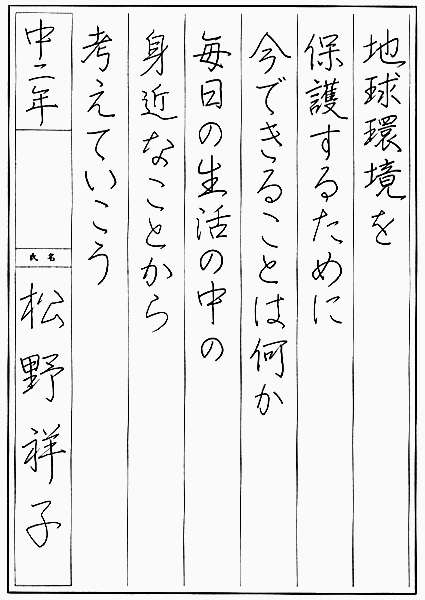 地球環境を
保護するために
今できることは何か
毎日の生活の中の
身近なことから
考えていこう
中二年
氏名
松野祥子